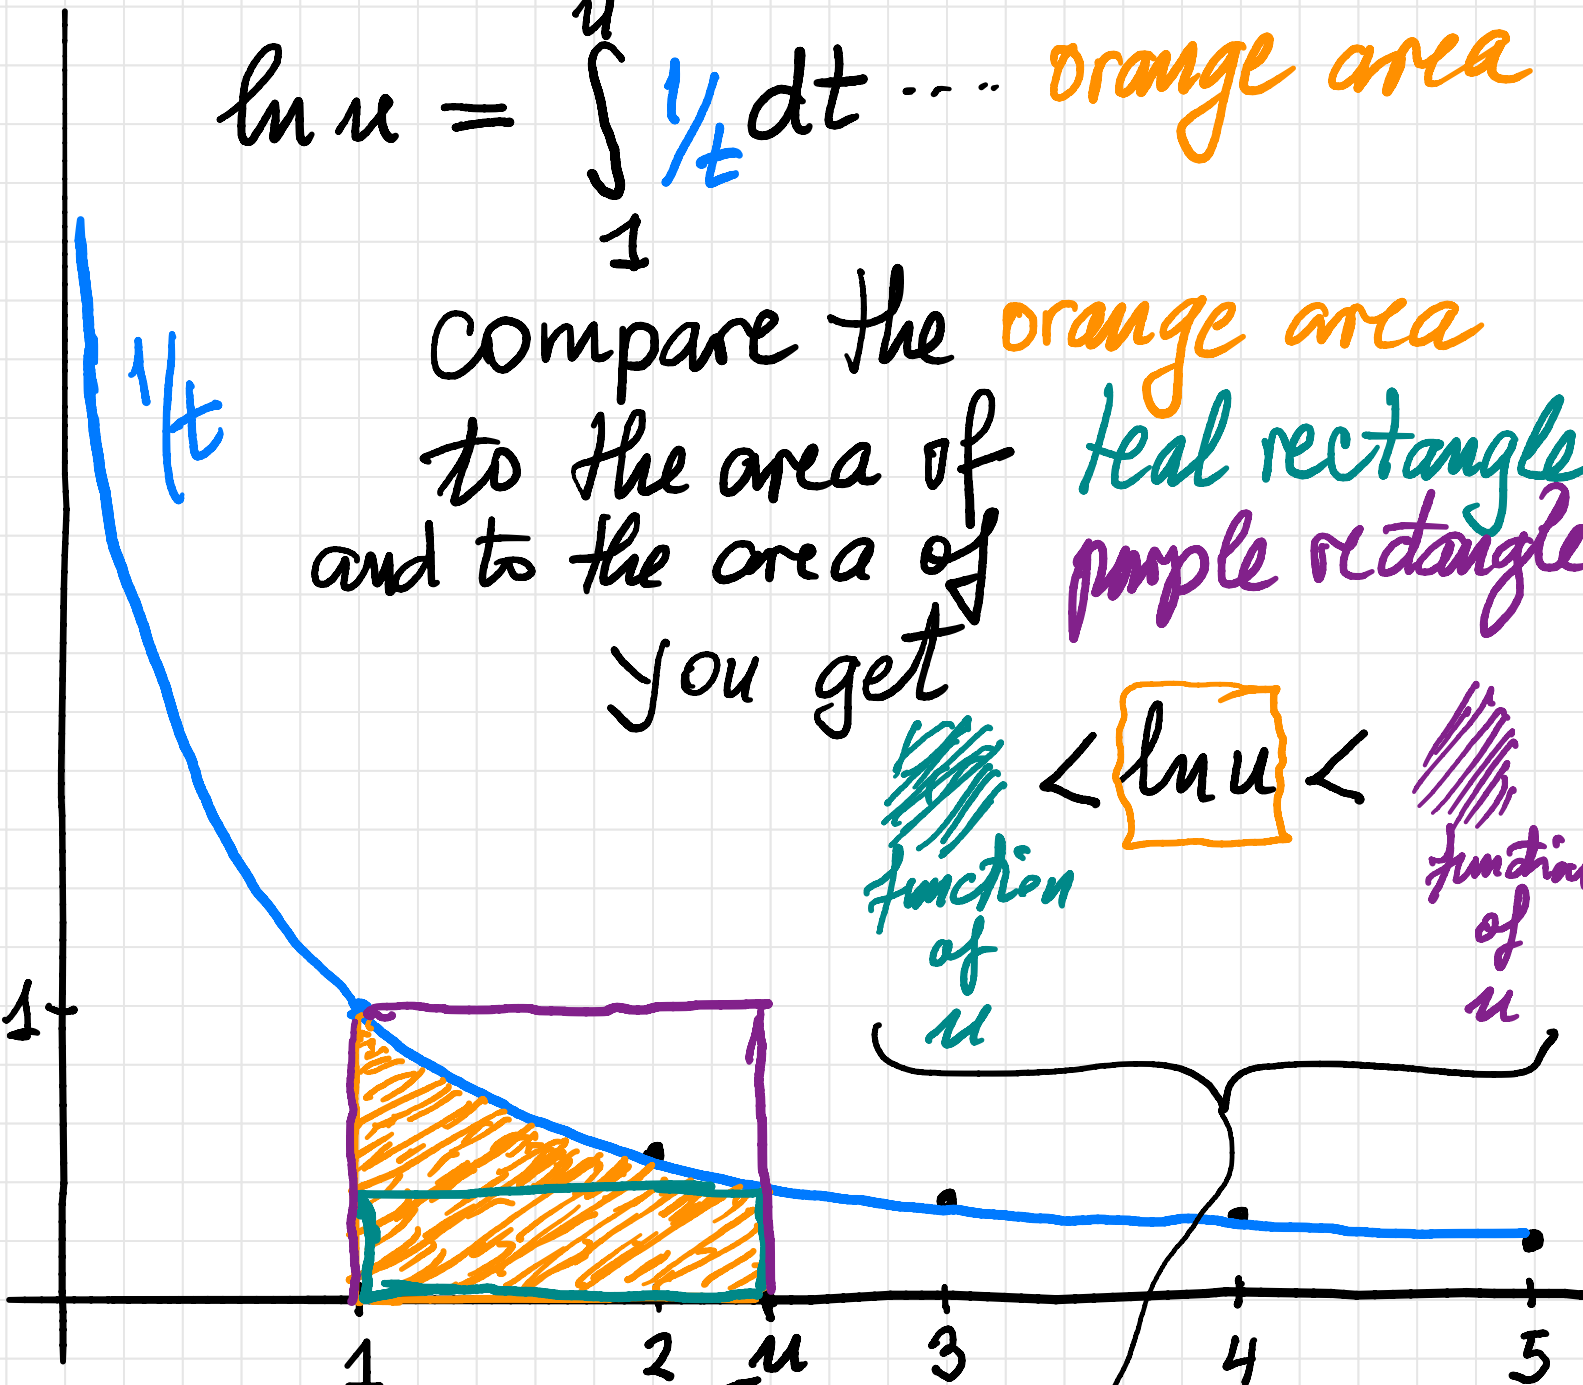 ln u = ∫₁ᵘ 1/t dt ---- orange area
1/t
compare the orange area
to the area of teal rectangle
and to the area of purple rectangle
you get
< ln u <
function of u
function of u
1
1 2 u 3 4 5